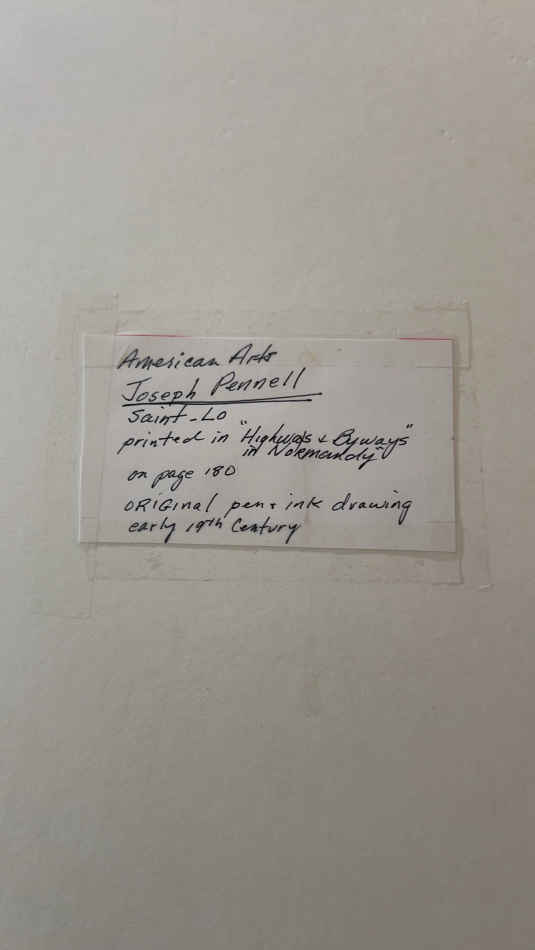 American Arts
Joseph Pennell
Saint-Lo
printed in "Highways & Byways"
in Normandy"
on page 180
ORIGINAL pen + ink drawing
early 19th Century